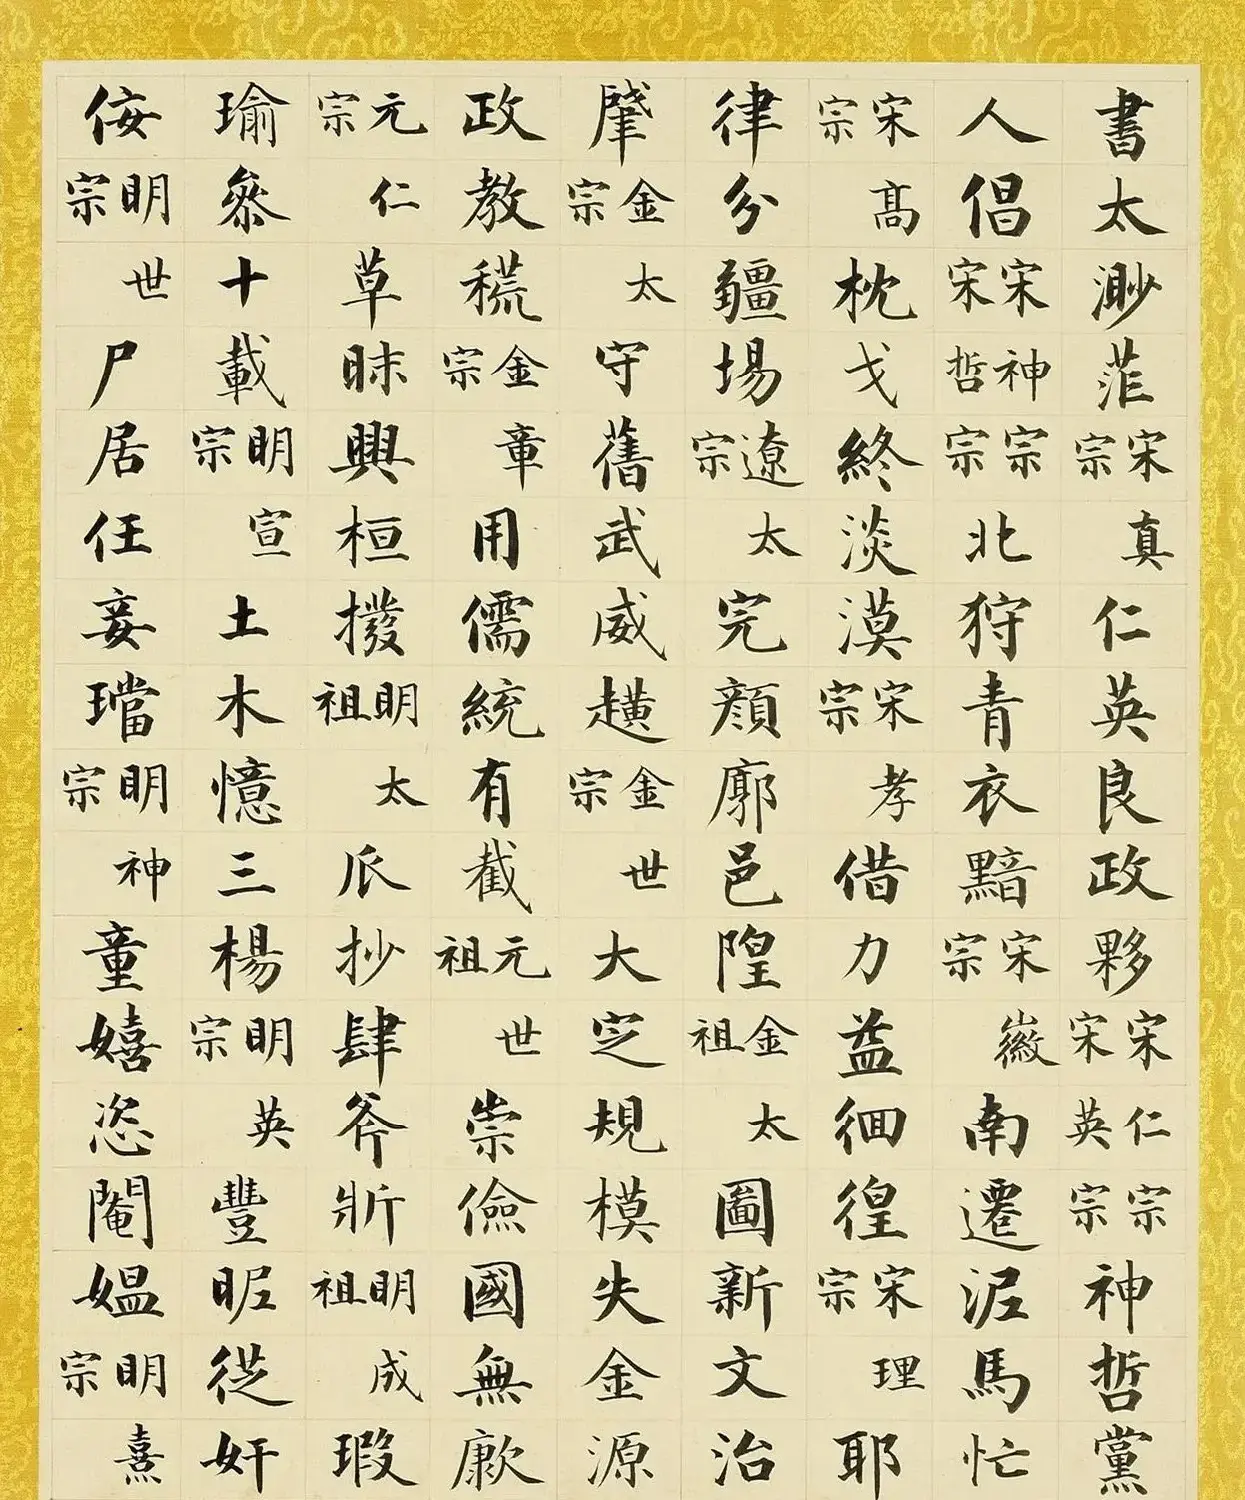 書太渺茫宋真宗仁英良政夥宋仁宗宋英宗神哲黨
人倡宋神宗宋哲宗北狩青衣黯宋徽宗南遷泥馬忙
宋高宗枕戈終淡漠宋孝宗借力益徊徨宋理宗耶
律分疆埸遼太宗完顏廓邑隍金太祖圖新文治
肇金太宗守舊武威趪金世宗大定規模失金源
政教䅣金章宗用儒統有截元世祖崇儉國無㱂
元仁宗草昧興桓撥明太祖瓜抄肆斧斨明成祖瑕
瑜參十載明宣宗土木憶三楊明英宗豐昵從奸
佞明世宗尸居任妾璫明神宗童嬉恣閹媼明宗熹